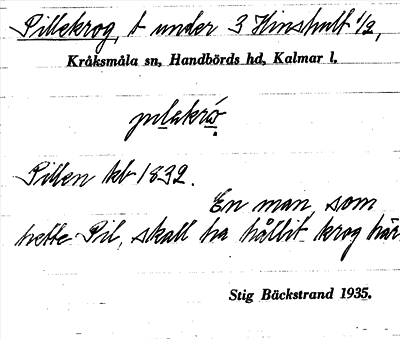 Pillekrog, t under 3 Hinshult 1/2,
Kråksmåla sn, Handbörds hd, Kalmar l.
Pillen kb 1832.
En man som
hette Pil, skall ha hållit krog här.
Stig Bäckstrand 1935.